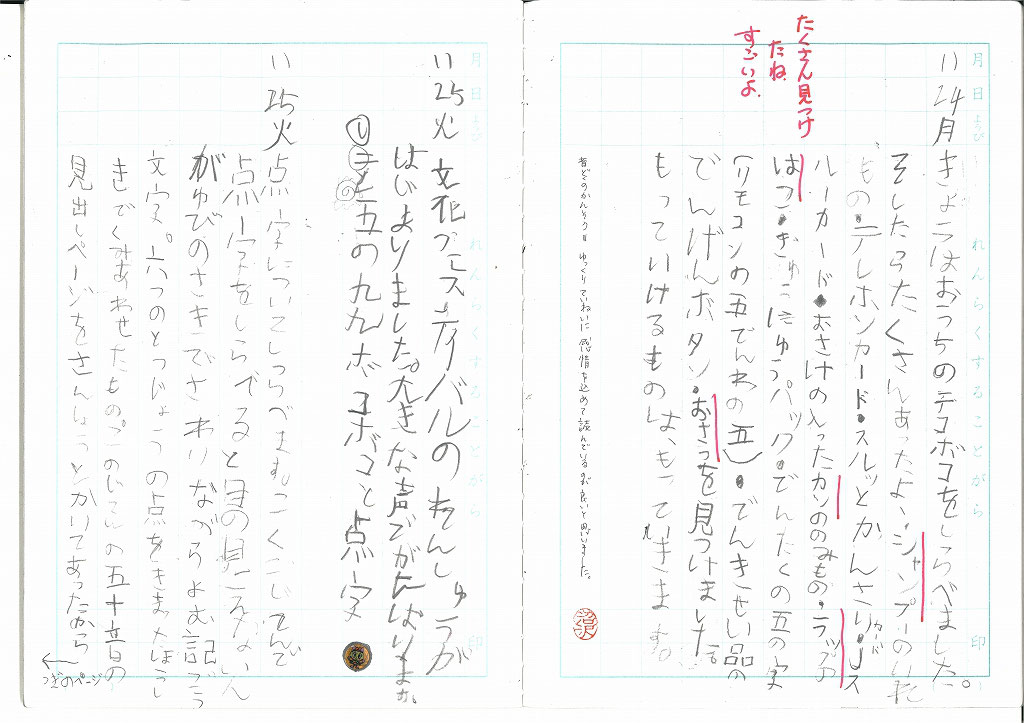 月
日
ようび
れんらくすることがら
印
11 24 月 きょうはおうちのデコボコをしらべました。
そしたらたくさんあったよ、シャンプーのいれ
もの・テレホンカード・スルッとかんさいカード・Jス
ルーカード・おさけの入ったカンののみもの・ラップの
はこ・ぎゅうにゅうパック・でんたくの五の字
(リモコンの五でんわの五)・でんきせい品の
でんげんボタン・おさつを見つけました。
もっていけるものは、もっていきます。
たくさん見つけ
たね。
すごいよ。
音どくのかんそう
ゆっくりていねいに感情を込めて読んでいるのが良いと思いました。
月
日
ようび
れんらくすることがら
印
11 25 火 文化フェスティバルのれんしゅうが
はじまりました。大きな声でがんばります。
① 五の九九 デコボコと点字
11 25 火 点字についてしらべます。こくごじてんで
点字をしらべると目の見えないじん
がゆびのさきでさわりながらよむ記ごう
文字。六つのとつじょうの点をきまったほうし
きでくみあわせたもの。このじてんの五十音の
見出しページをさんしょうとかいてあったから
つぎのページ